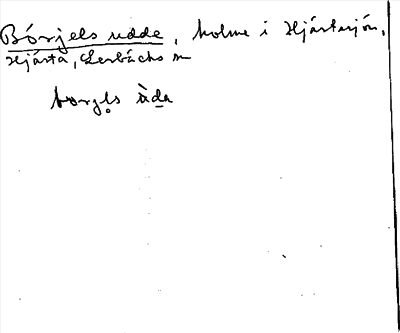 Börjels udde, holme i Hjärtasjön,
Hjärta, Lerbäcks sn
borgl̥s àda